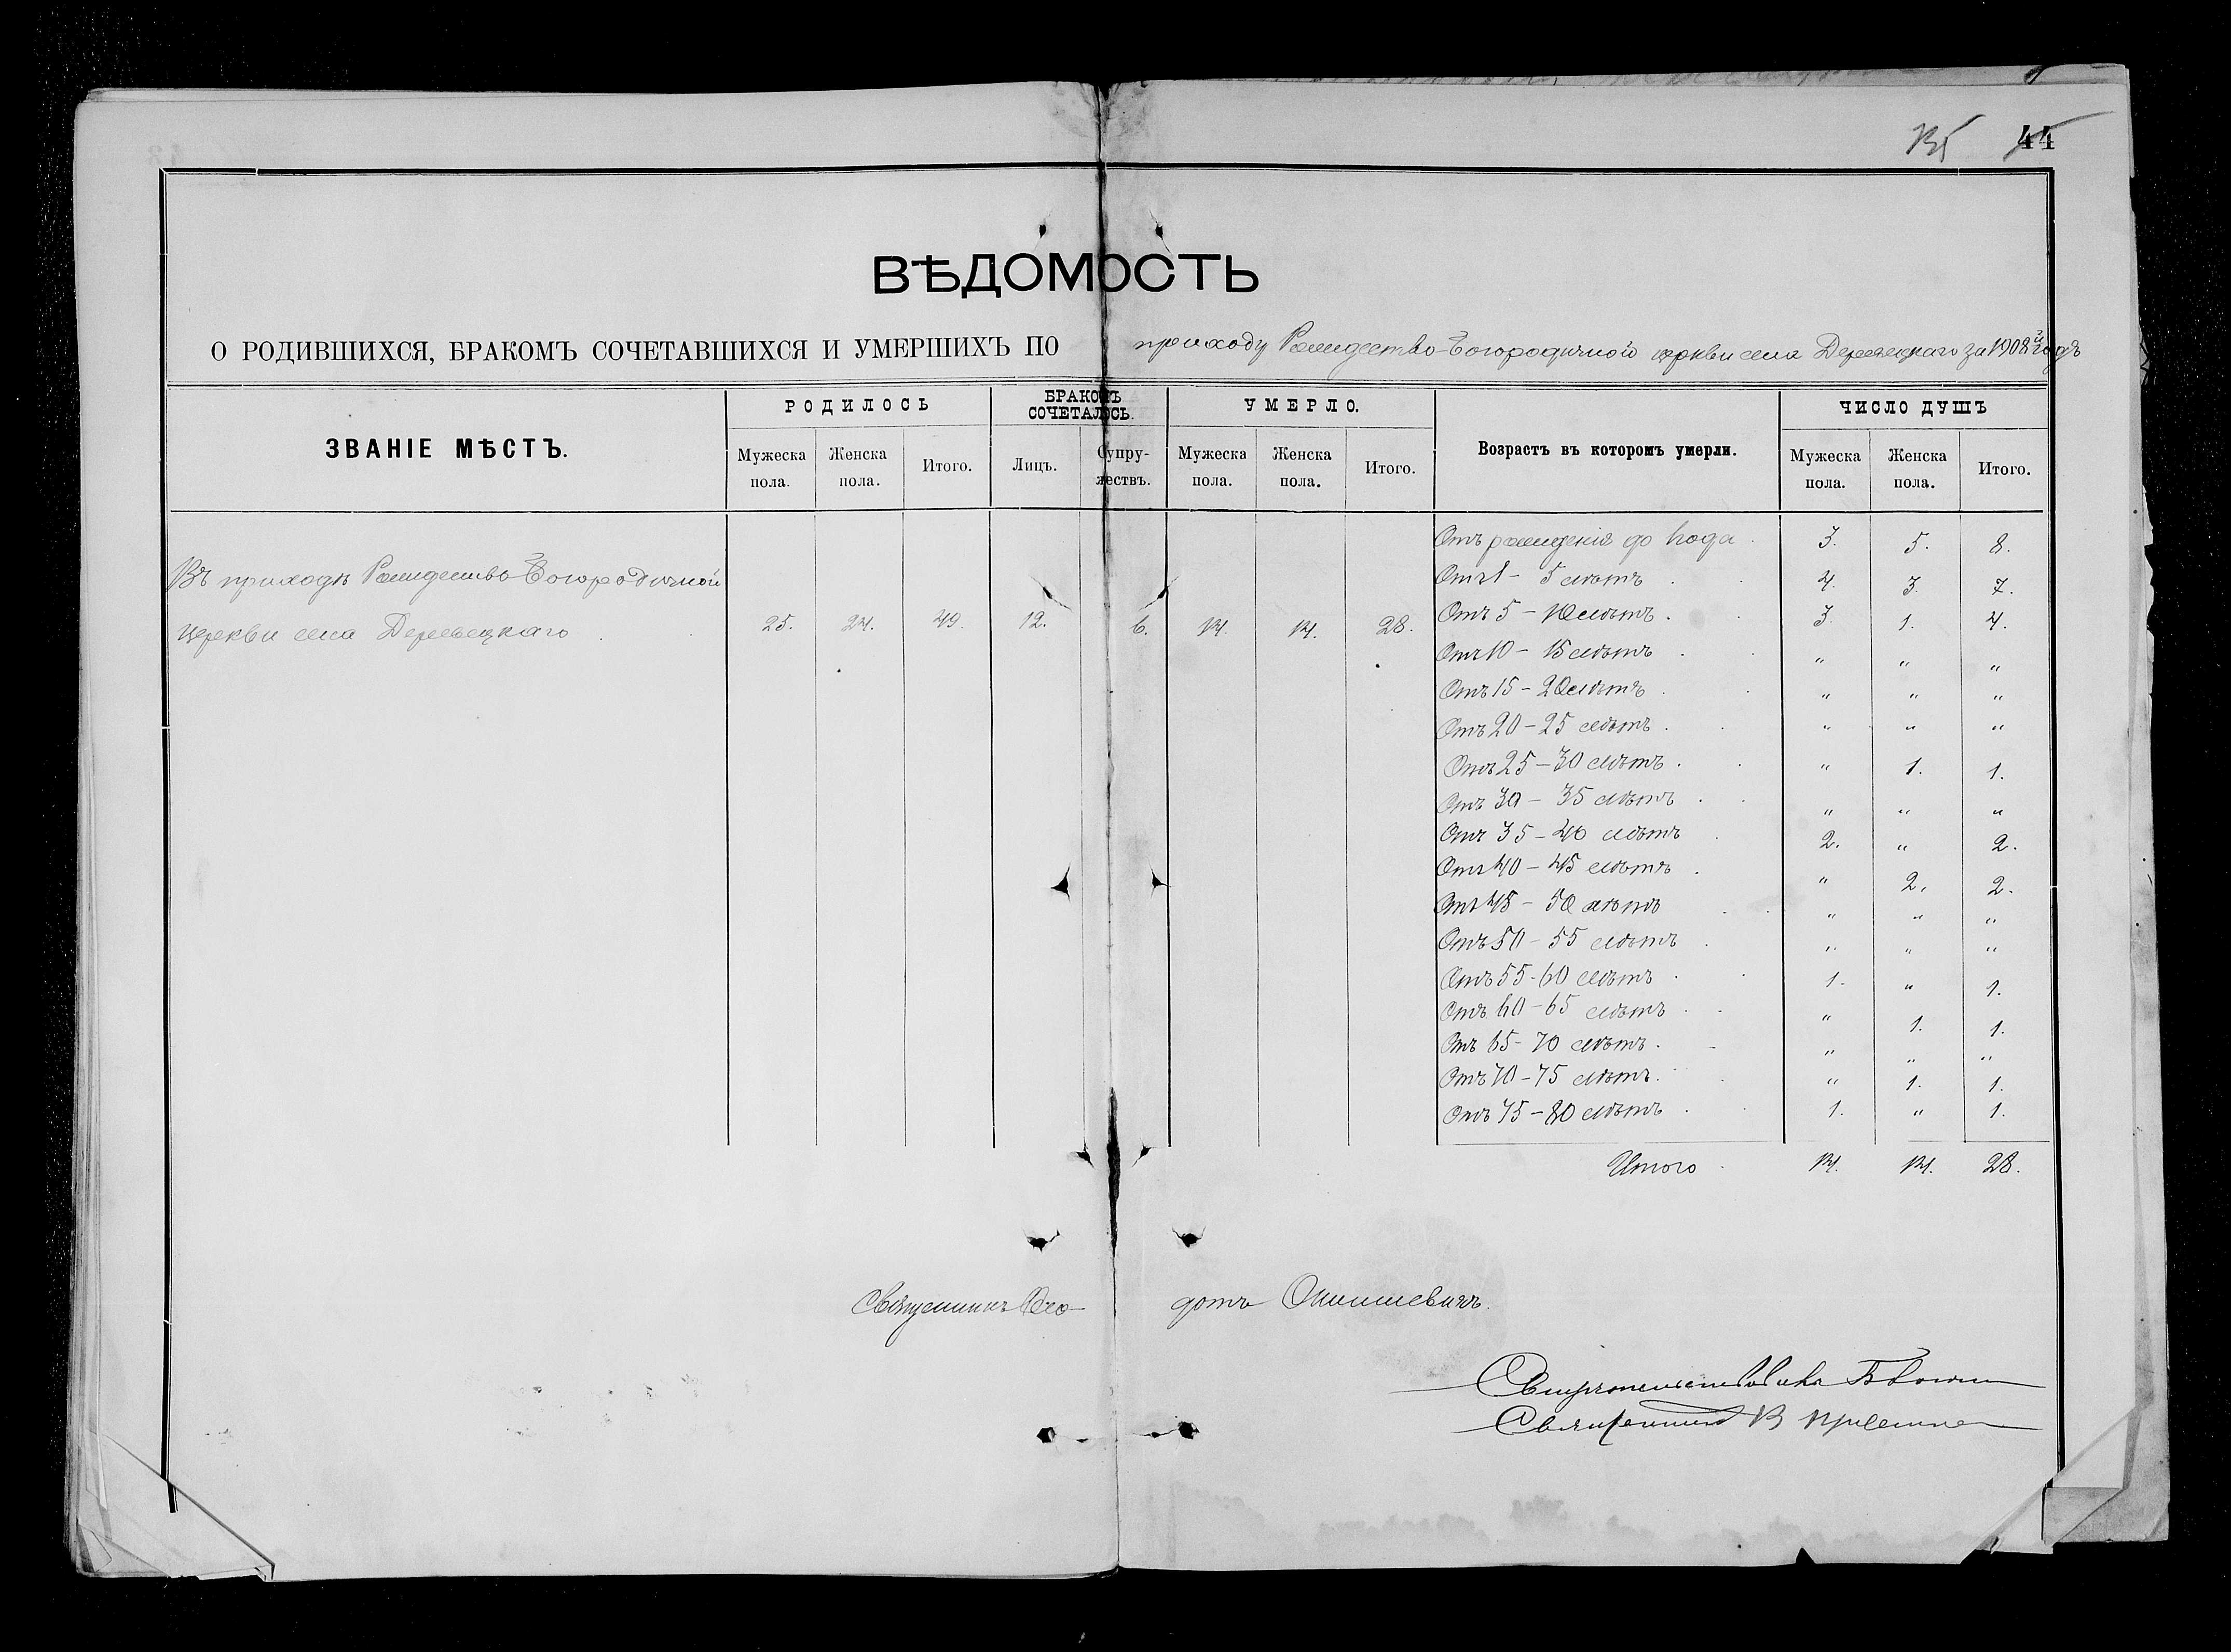 44
ВѢДОМОСТЬ
О РОДИВШИХСЯ, БРАКОМЪ СОЧЕТАВШИХСЯ И УМЕРШИХЪ ПО приходу Рождество-Богородичной церкви села Деревецкаго за 1908й годъ
ЗВАНІЕ МѢСТЪ.
РОДИЛОСЬ
Мужеска пола. Женска пола. Итого.
БРАКОМЪ СОЧЕТАЛОСЬ.
Лицъ. Супружествъ.
УМЕРЛО.
Мужеска пола. Женска пола. Итого.
Возрастъ въ которомъ умерли.
ЧИСЛО ДУШЪ
Мужеска пола. Женска пола. Итого.
Въ приходѣ Рождество-Богородичной
церкви села Деревецкаго . 25. 24. 49. 12. 6. 14. 14. 28.
Отъ рожденія до 1 года . 3. 5. 8.
Отъ 1 - 5 лѣтъ . 4. 3. 7.
Отъ 5 - 10 лѣтъ . 3. 1. 4.
Отъ 10 - 15 лѣтъ . " " "
Отъ 15 - 20 лѣтъ . " " "
Отъ 20 - 25 лѣтъ . " " "
Отъ 25 - 30 лѣтъ . " 1. 1.
Отъ 30 - 35 лѣтъ . " " "
Отъ 35 - 40 лѣтъ . 2. " 2.
Отъ 40 - 45 лѣтъ . " 2. 2.
Отъ 45 - 50 лѣтъ . " " "
Отъ 50 - 55 лѣтъ . " " "
Отъ 55 - 60 лѣтъ . 1. " 1.
Отъ 60 - 65 лѣтъ . " 1. 1.
Отъ 65 - 70 лѣтъ . " " "
Отъ 70 - 75 лѣтъ . " 1. 1.
Отъ 75 - 80 лѣтъ . 1. " 1.
Итого . 14. 14. 28.
Священникъ Ѳео-дотъ Онишевичъ.
Священникъ В